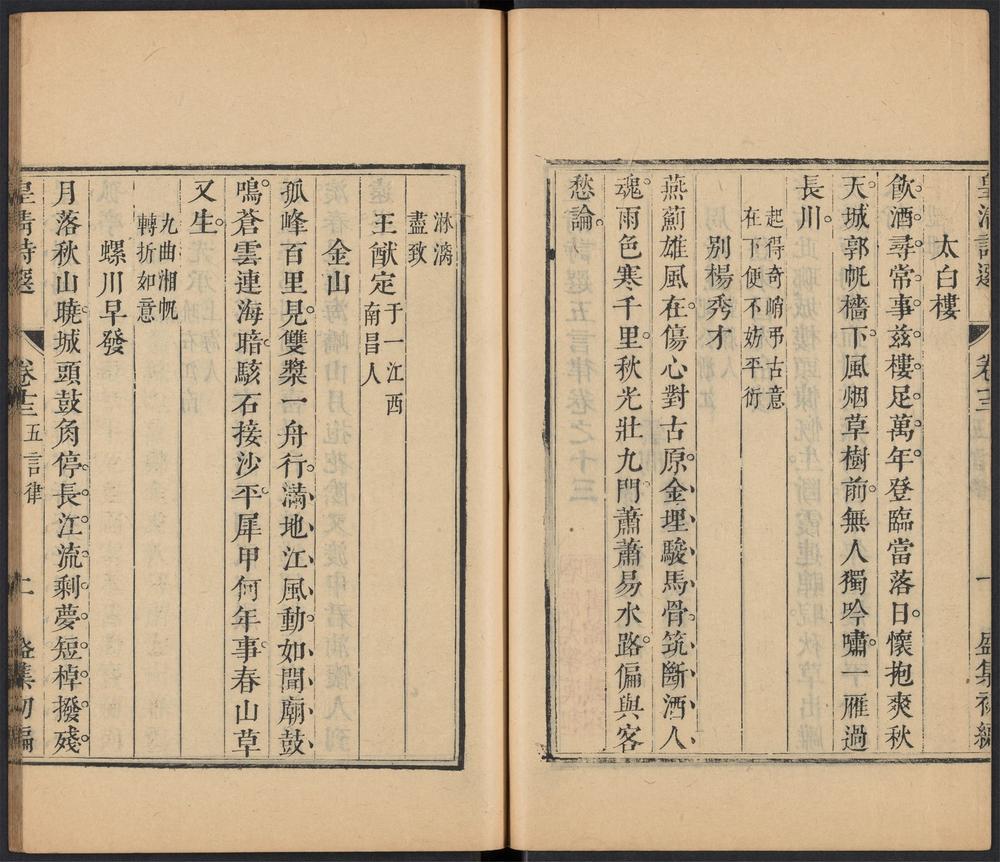 皇清詩選
卷十三
五言律
一
盛集初編
太白樓
飲酒尋常事茲樓足萬年登臨當落日懷抱爽秋
天城郭帆檣下風烟草樹前無人獨吟嘯一雁過
長川
起得奇峭弔古意
在下便不妨平衍
别楊秀才
燕薊雄風在傷心對古原金埋駿馬骨筑斷酒人
魂雨色寒千里秋光壯九門蕭蕭易水路偏與客
愁論
淋漓
盡致
王猷定于一江西
南昌人
金山
孤峰百里見雙槳一舟行滿地江風動如聞廟鼓
鳴蒼雲連海暗駭石接沙平犀甲何年事春山草
又生
九曲湘帆
轉折如意
螺川早發
月落秋山曉城頭鼓角停長江流剩夢短棹撥殘
皇清詩選
卷十三
五言律
二
盛集初編